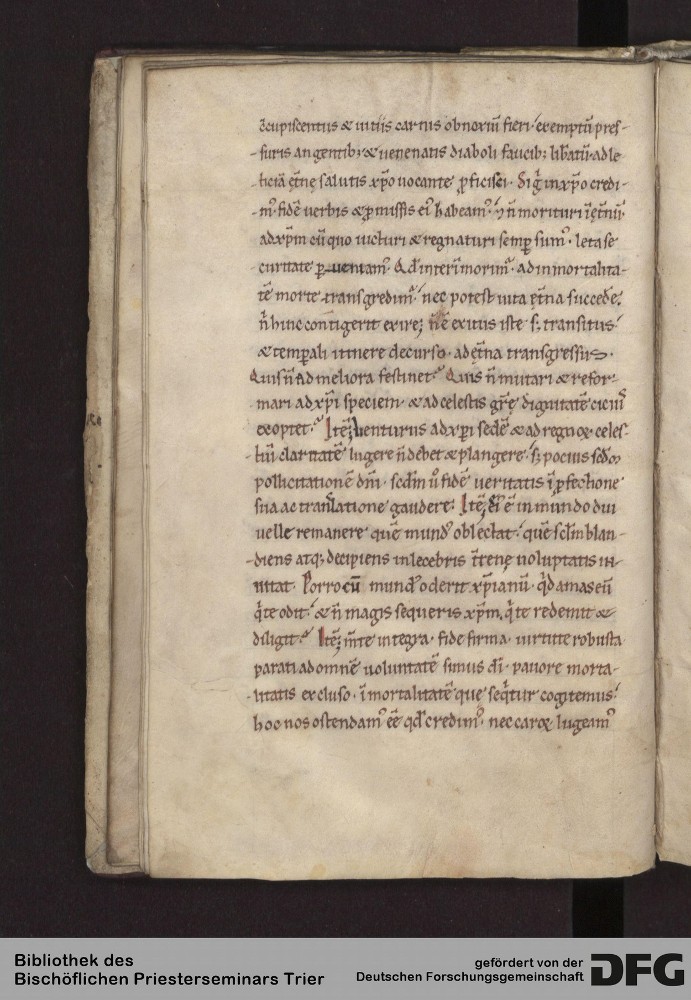 c̄cupiscentiis & uitiis carnis obnoxiū fieri. exemptū pres-
suris angentib; & uenenatis diaboli faucib; lib̄atū. ad le-
ticiā ęt̄nę salutis xp̄o uocante ꝓficisci. Si ḡ in xp̄o credi-
m᷒. fidē uerbis & ꝓmissis ei᷒ habeam᷒. & n̄ morituri ī ęt̄nū.
ad xp̄m cū quo uicturi & regnaturi semꝑ sum᷒. leta se-
curitate ꝑueniam᷒. Qd̄ interī morim᷑. ad inmortalita-
tē morte transgredim᷑. nec potest uita ęt̄na succedere.
n̄ hinc contigerit exire; n̄ ē exitus iste s; transitus.
& temꝑali itinere decurso. ad ęt̄na transgressus.
Quis n̄ ad meliora festinet. Quis n̄ mutari & refor-
mari ad xp̄i speciem. & ad celestis gr̄ę dignitatē cicius
exoptet. Itē; Uenturus ad xp̄i sedē & ad regnoꝝ celes-
tiū claritatē lugere n̄ debet & plangere. s; pocius scd̄m
pollicitationē dn̄i. scd̄m u᷒ fidē ueritatis ī ꝓfectione
sua ac translatione gaudere. Itē; Ei᷒ ē in mundo diu
uelle remanere quē mund᷒ oblectat. quē sc̄lm blan-
diens atq; decipiens inlecebris t̄renę uoluptatis in-
uitat. Porro cū mund᷒ oderit xp̄ianū. qd̄ amas eū
q̄ te odit. & n̄ magis sequeris xp̄m. q̄ te redemit &
diligit. Itē; m̄te integra. fide firma. uirtute robusta
parati ad omnē uoluntatē simus di̅. pauore morta-
litatis excluso. īmortalitatē quę seq̄tur cogitemus.
hoc nos ostendam᷒ eē qd̄ credim᷒. nec caroꝝ lugeam᷒
Bibliothek des
Bischöflichen Priesterseminars Trier
gefördert von der
Deutschen Forschungsgemeinschaft
DFG